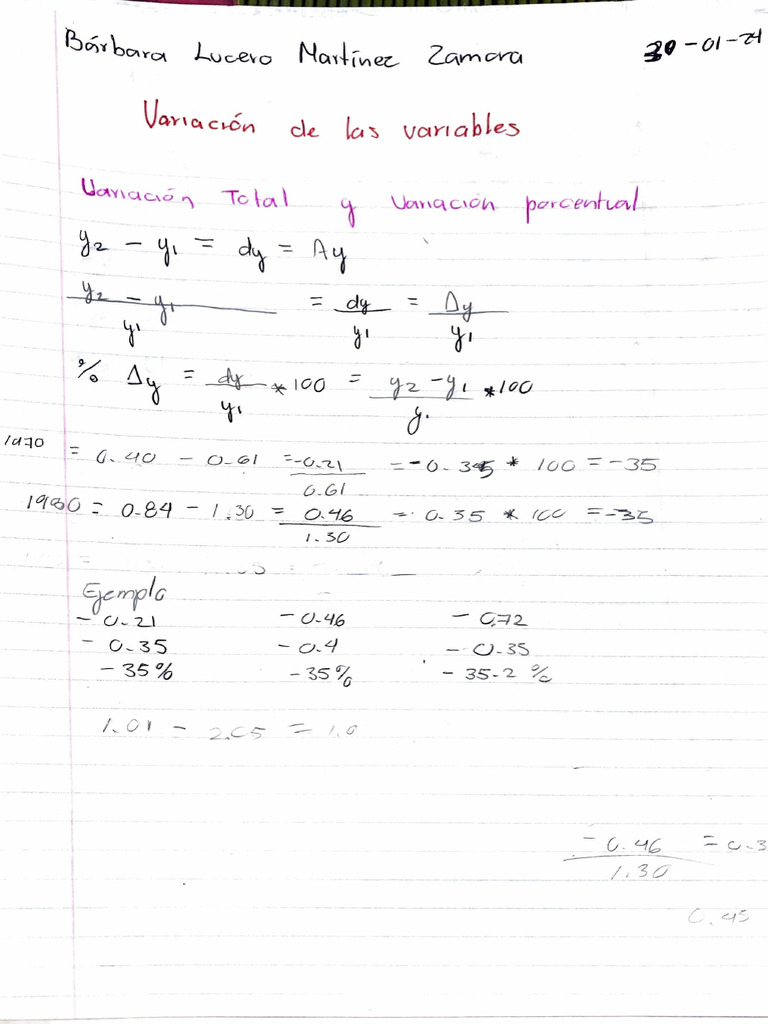 Bárbara Lucero Martínez Zamora 30-01-24
Variación de las variables
Variación Total y Variación porcentual
y2 - y1 = dy = Δy
y2 - y1 / y1 = dy / y1 = Δy / y1
% Δy = dy / y1 * 100 = y2 - y1 / y1 * 100
1970 = 0.40 - 0.61 = -0.21 / 0.61 = -0.345 * 100 = -35
1980 = 0.84 - 1.30 = 0.46 / 1.30 = 0.35 * 100 = -35
Ejemplo
- 0.21 - 0.46 - 0.72
- 0.35 - 0.4 - 0.35
- 35% - 35% - 35.2 %
1.01 - 2.05 = 1.0
- 0.46 / 1.30 = 0.3
0.45